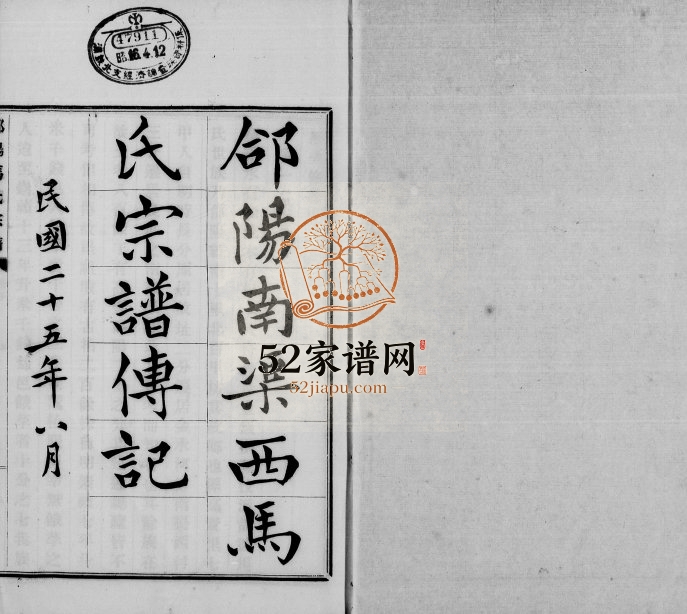 郃陽南渠西馬
氏宗譜傳記
民國二十五年八月
47911
昭16.4.12
52家谱网
52jiapu.com